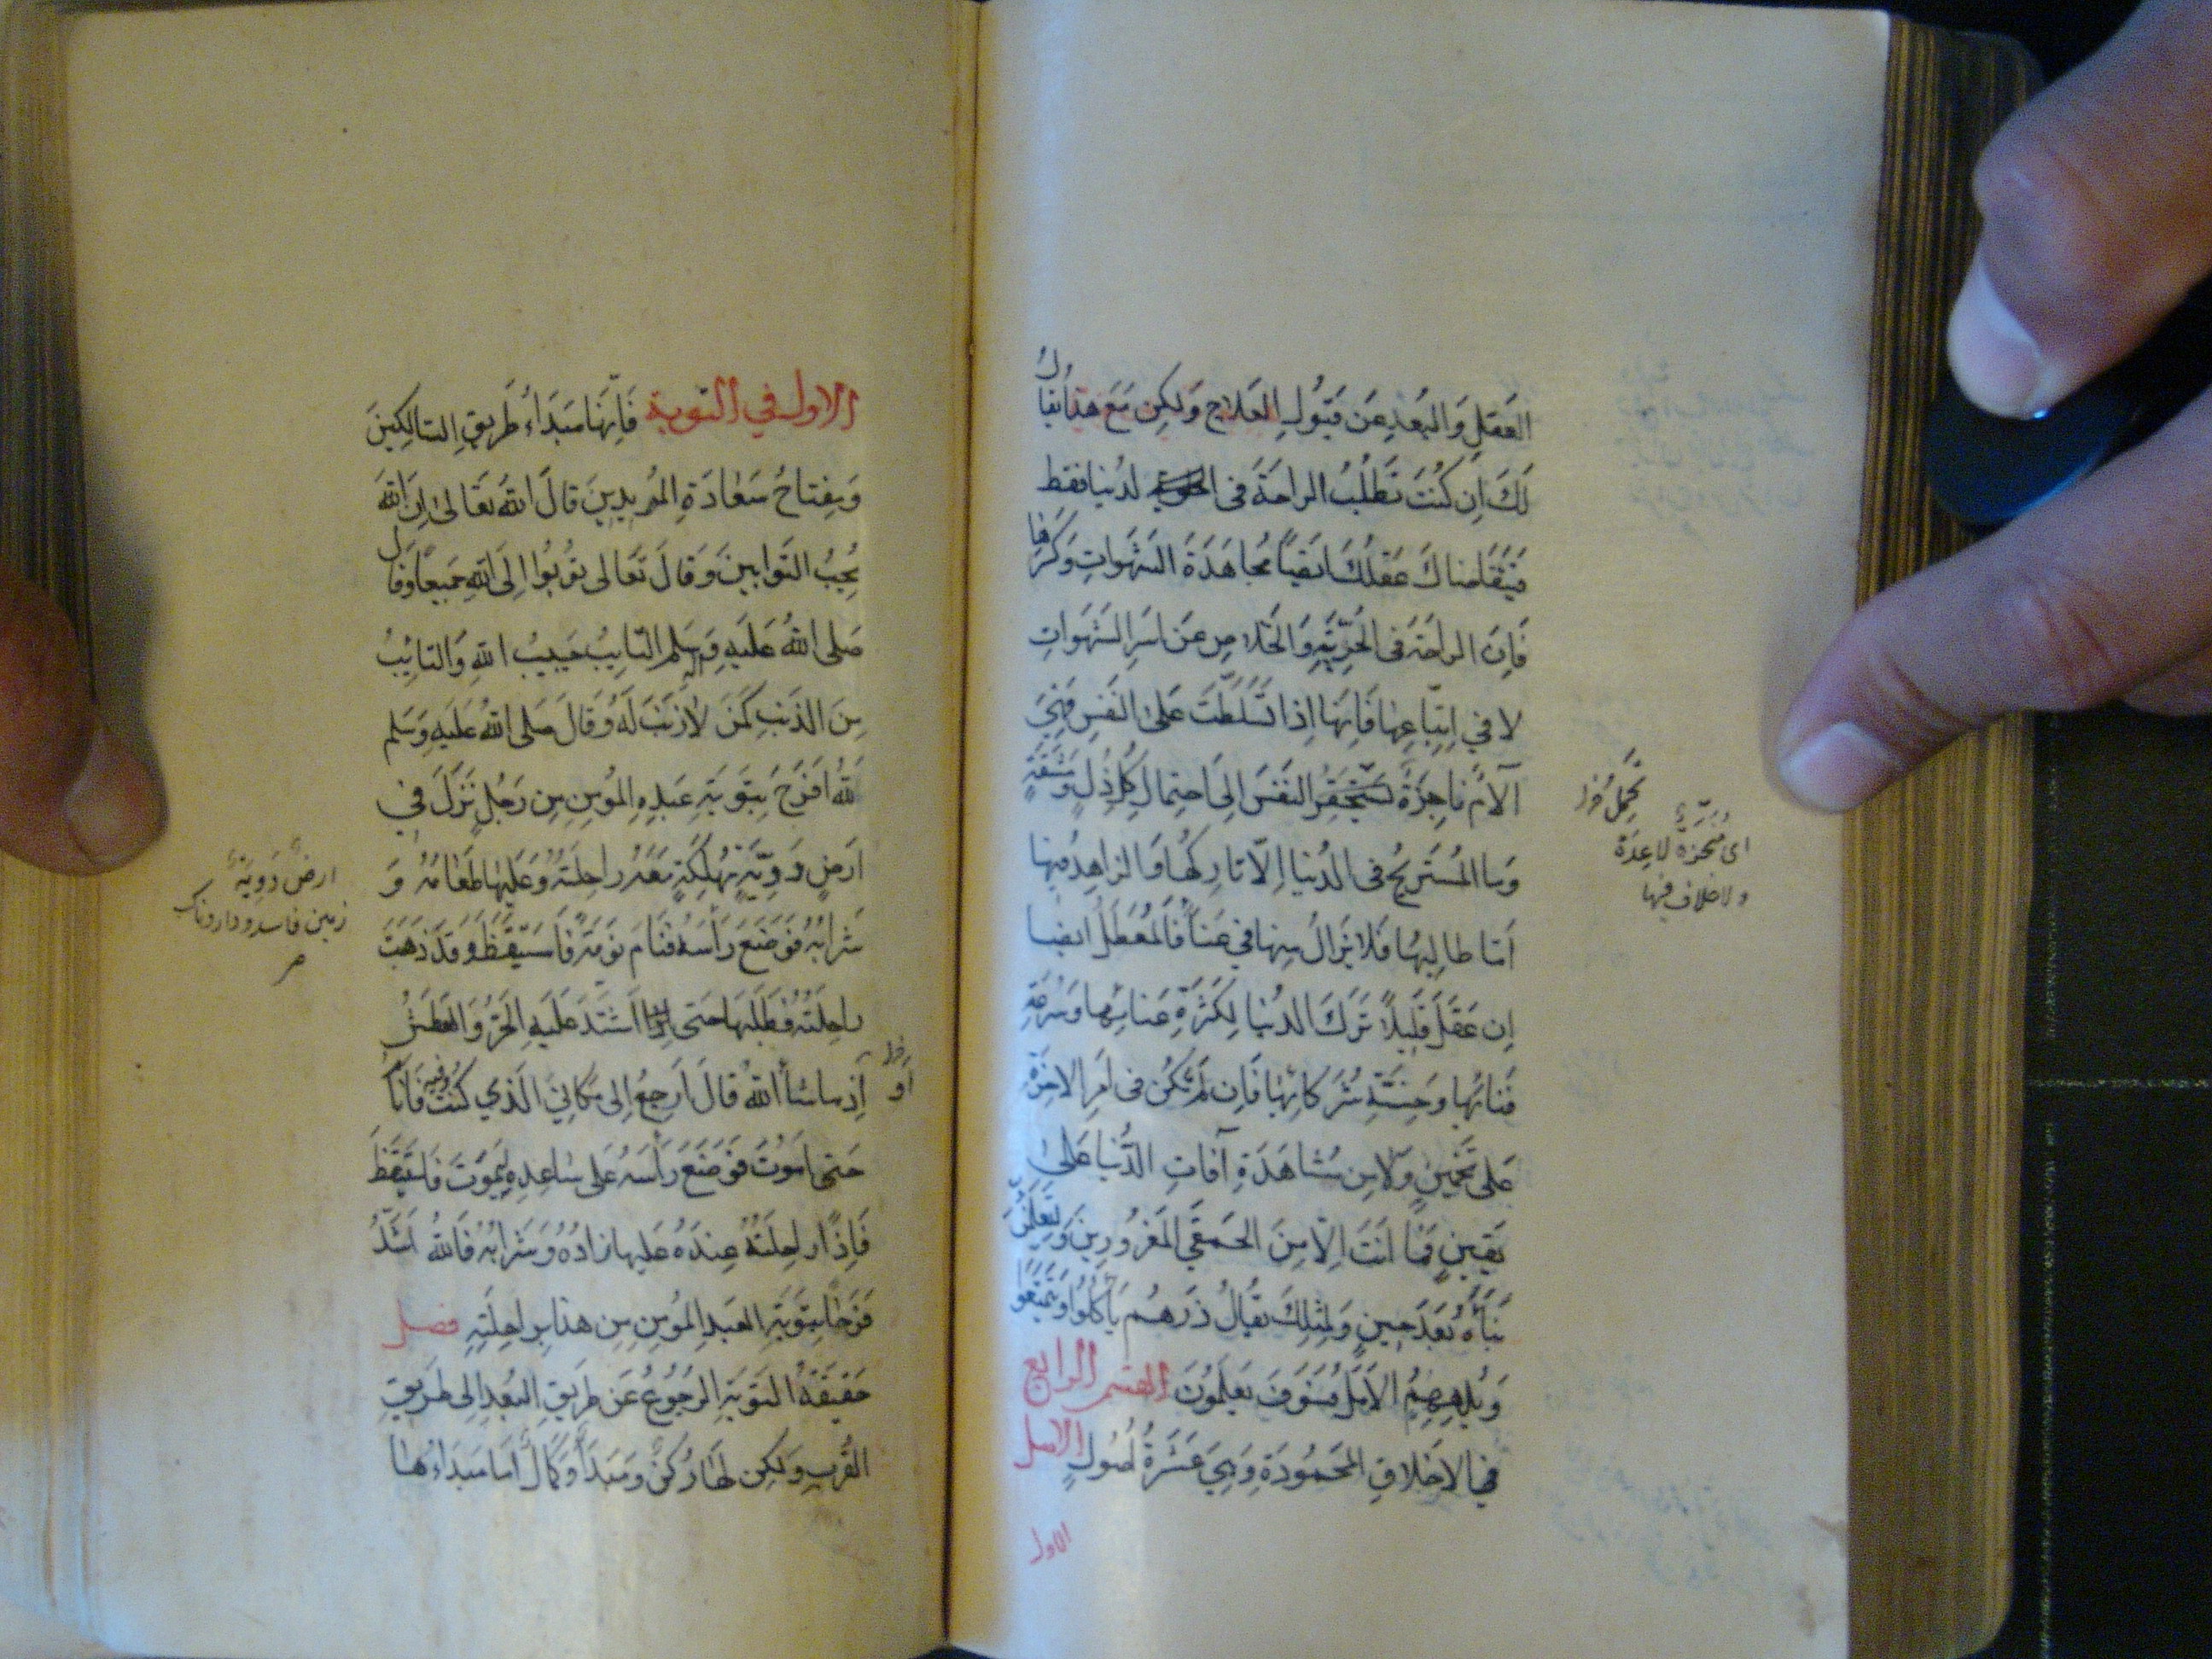 العقل والبُعد عن قبول العلاج ولكن مع هذا يقال
لك ان كنت تطلب الراحة فى لدنيا فقط
فيتقاضاك عقلك ايضًا مجاهدة الشهوات وكرها
فَاِنّ الراحة فى الحُرّيّةِ وَالخلاص عن اسر الشهوات
لا في اتباعها فانها اذا تسلطت على النفس فهى
آلام ناجزة تستحقر النفس الى احتمال كل ذل ومشقة
وما المستريح فى الدنيا الّا تاركها والزاهد فيها
امّا طالبها فلا يزال منها في عناء فالمعطل ايضا
ان عقل قليلاً ترك الدنيا لكثرة عنائها وسرعة
فنائها وخسّة شركائها فان لم تكن فى امر الاخرة
على تخمين ولا من مشاهدة آفات الدنيا على
يقين فما انت الّا من الحمقى المغرورين ولتعلمن
نبأه بعد حين ولمثلك يقال ذرهم يأكلوا ويتمتعوا
ويلههم الامل فسوف يعلمون القسم الرابع
في الاخلاق المحمودة وهي عشرة اصول الاصل
الاول
تحمل
اى منجزة لا عدة
ولا خلاف فيها
الاول في التوبة فانّها مبداء طريق السالكين
ومفتاح سعادة المريدين قال الله تعالى ان الله
يحب التوابين وقال تعالى توبوا الى الله جميعًا وقال
صلى الله عليه وسلم التايب حبيب الله والتائب
من الذنب كمن لاذنب له وقال صلى الله عليه وسلم
لله افرح بتوبة عبده المؤمن من رجل نزل في
ارض دويّة مهلكة معه راحلته وعليها طعامه و
شرابه فوضع رأسه فنام نومة فاستيقظ وقد ذهبت
راحلته فطلبها حتى اذا اشتد عليه الحرّ والعطش
او
اذ ماشاء الله قال ارجع الى مكاني الذي كنت فيه فانام
حتى اموت فوضع رأسه على ساعده ليموت فاستيقظ
فاذا راحلته عنده عليها زاده وشرابه فالله اشدّ
فرحًا بتوبة العبد المؤمن من هذا براحلته فصل
حقيقة التوبة الرجوع عن طريق البعد الى طريق
القرب ولكن لها ركن ومبدأ وكمال اما مبداءها
ارض دوية
زمين فاسد و دارونا